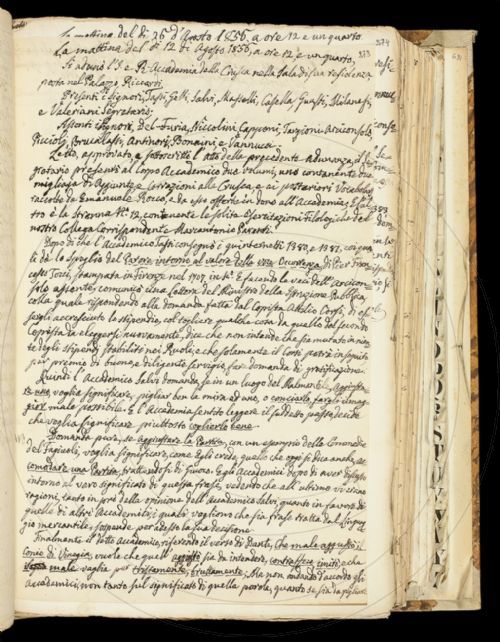 La mattina del dì 26 d'Agosto 1856, a ore 12 e un quarto
La mattina del dì 12 di Agosto 1856, a ore 12 e un quarto,
si adunò l'I. e R. Accademia della Crusca nella sala di sua residenza
posta nel Palazzo Riccardi.
Presenti i Signori, Tassi, Gelli, Salvi, Casella, Guasti, Milanesi,
e Valeriani Segretario.
Assenti i Signori, Del Furia, Niccolini, Capponi, Targioni Arciconsolo,
Piccioli, Brucalassi, Antinori, Bonaini e Vannucci.
Letto, approvato e sottoscritto l'Atto della precedente adunanza, il Se-
gretario presentò al Corpo Accademico due volumi, uno contenente due
migliaja di Aggiunte e Correzioni alla Crusca, e ai posteriori Vocabolarj
raccolte da Emanuele Rocco, e da esso offerte in dono all'Accademia; E l'al-
tro è la Strenna Nº. 12, contenente le solite Esercitazioni Filologiche del
nostro Collega Corrispondente Marcantonio Parenti.
Dopo di che l'Accademico Tassi consegnò i quinternetti 1380, e 1381, coi qua-
li dà lo Spoglio del Parere intorno al valore della voce Occorrenza, di Pier Fran-
cesco Tocci, stampata in Firenze nel 1707 in 4º. E facendo le veci dell'Arcicon-
solo assente, comunicò una lettera del Ministro della Istruzione Pubblica,
colla quale rispondendo alla domanda fatta dal Copista Attilio Corsi, di es-
sergli accresciuto lo stipendio, col togliere qualche cosa da quello del secondo
Copista da eleggersi nuovamente, dice che non intende che sia mutato in par-
te degli stipendj stabiliti nei Ruoli, e che solamente il Corsi potrà in seguito
per premio di buono e diligente servizio, far domanda di gratificazione.
Quindi l'Accademico Salvi domanda, se in un luogo del Malmantile,
voglia significare, pigliar ben la mira ad uno, o conciarlo, fargli il mag-
gior male possibile. E l'Accademia sentito leggere il suddetto passo, decide
che voglia significare piuttosto coglierlo bene.
Domanda pure, se aggiustare la Partita, con un esempio delle Commedie
del Fagiuoli, voglia significare, come Egli crede, quello che oggi si dice anche, ac-
comodare una Partita, trattandosi di giuoco. E gli Accademici dopo di aver disputato
intorno al vero significato di questa frase, vedendo che all'ultimo vi erano
ragioni, tanto in prò della opinione dell'Accademico Salvi, quanto in favore di
quelle di altri Accademici, i quali vogliono che sia frase tratta dal linguag-
gio mercantile, sospende per adesso la sua decisione.
Finalmente il detto Accademico, riferendo il verso di Dante, Che male aggiustò il
Conio di Vinegia, vuole che quell' aggiustò sia da intendere, contraffece, imitò; e che
male vaglia per tristamente, bruttamente; Ma non andando d'accordo gli
Accademici, non tanto sul significato di quella parola, quanto se sia da pigliare